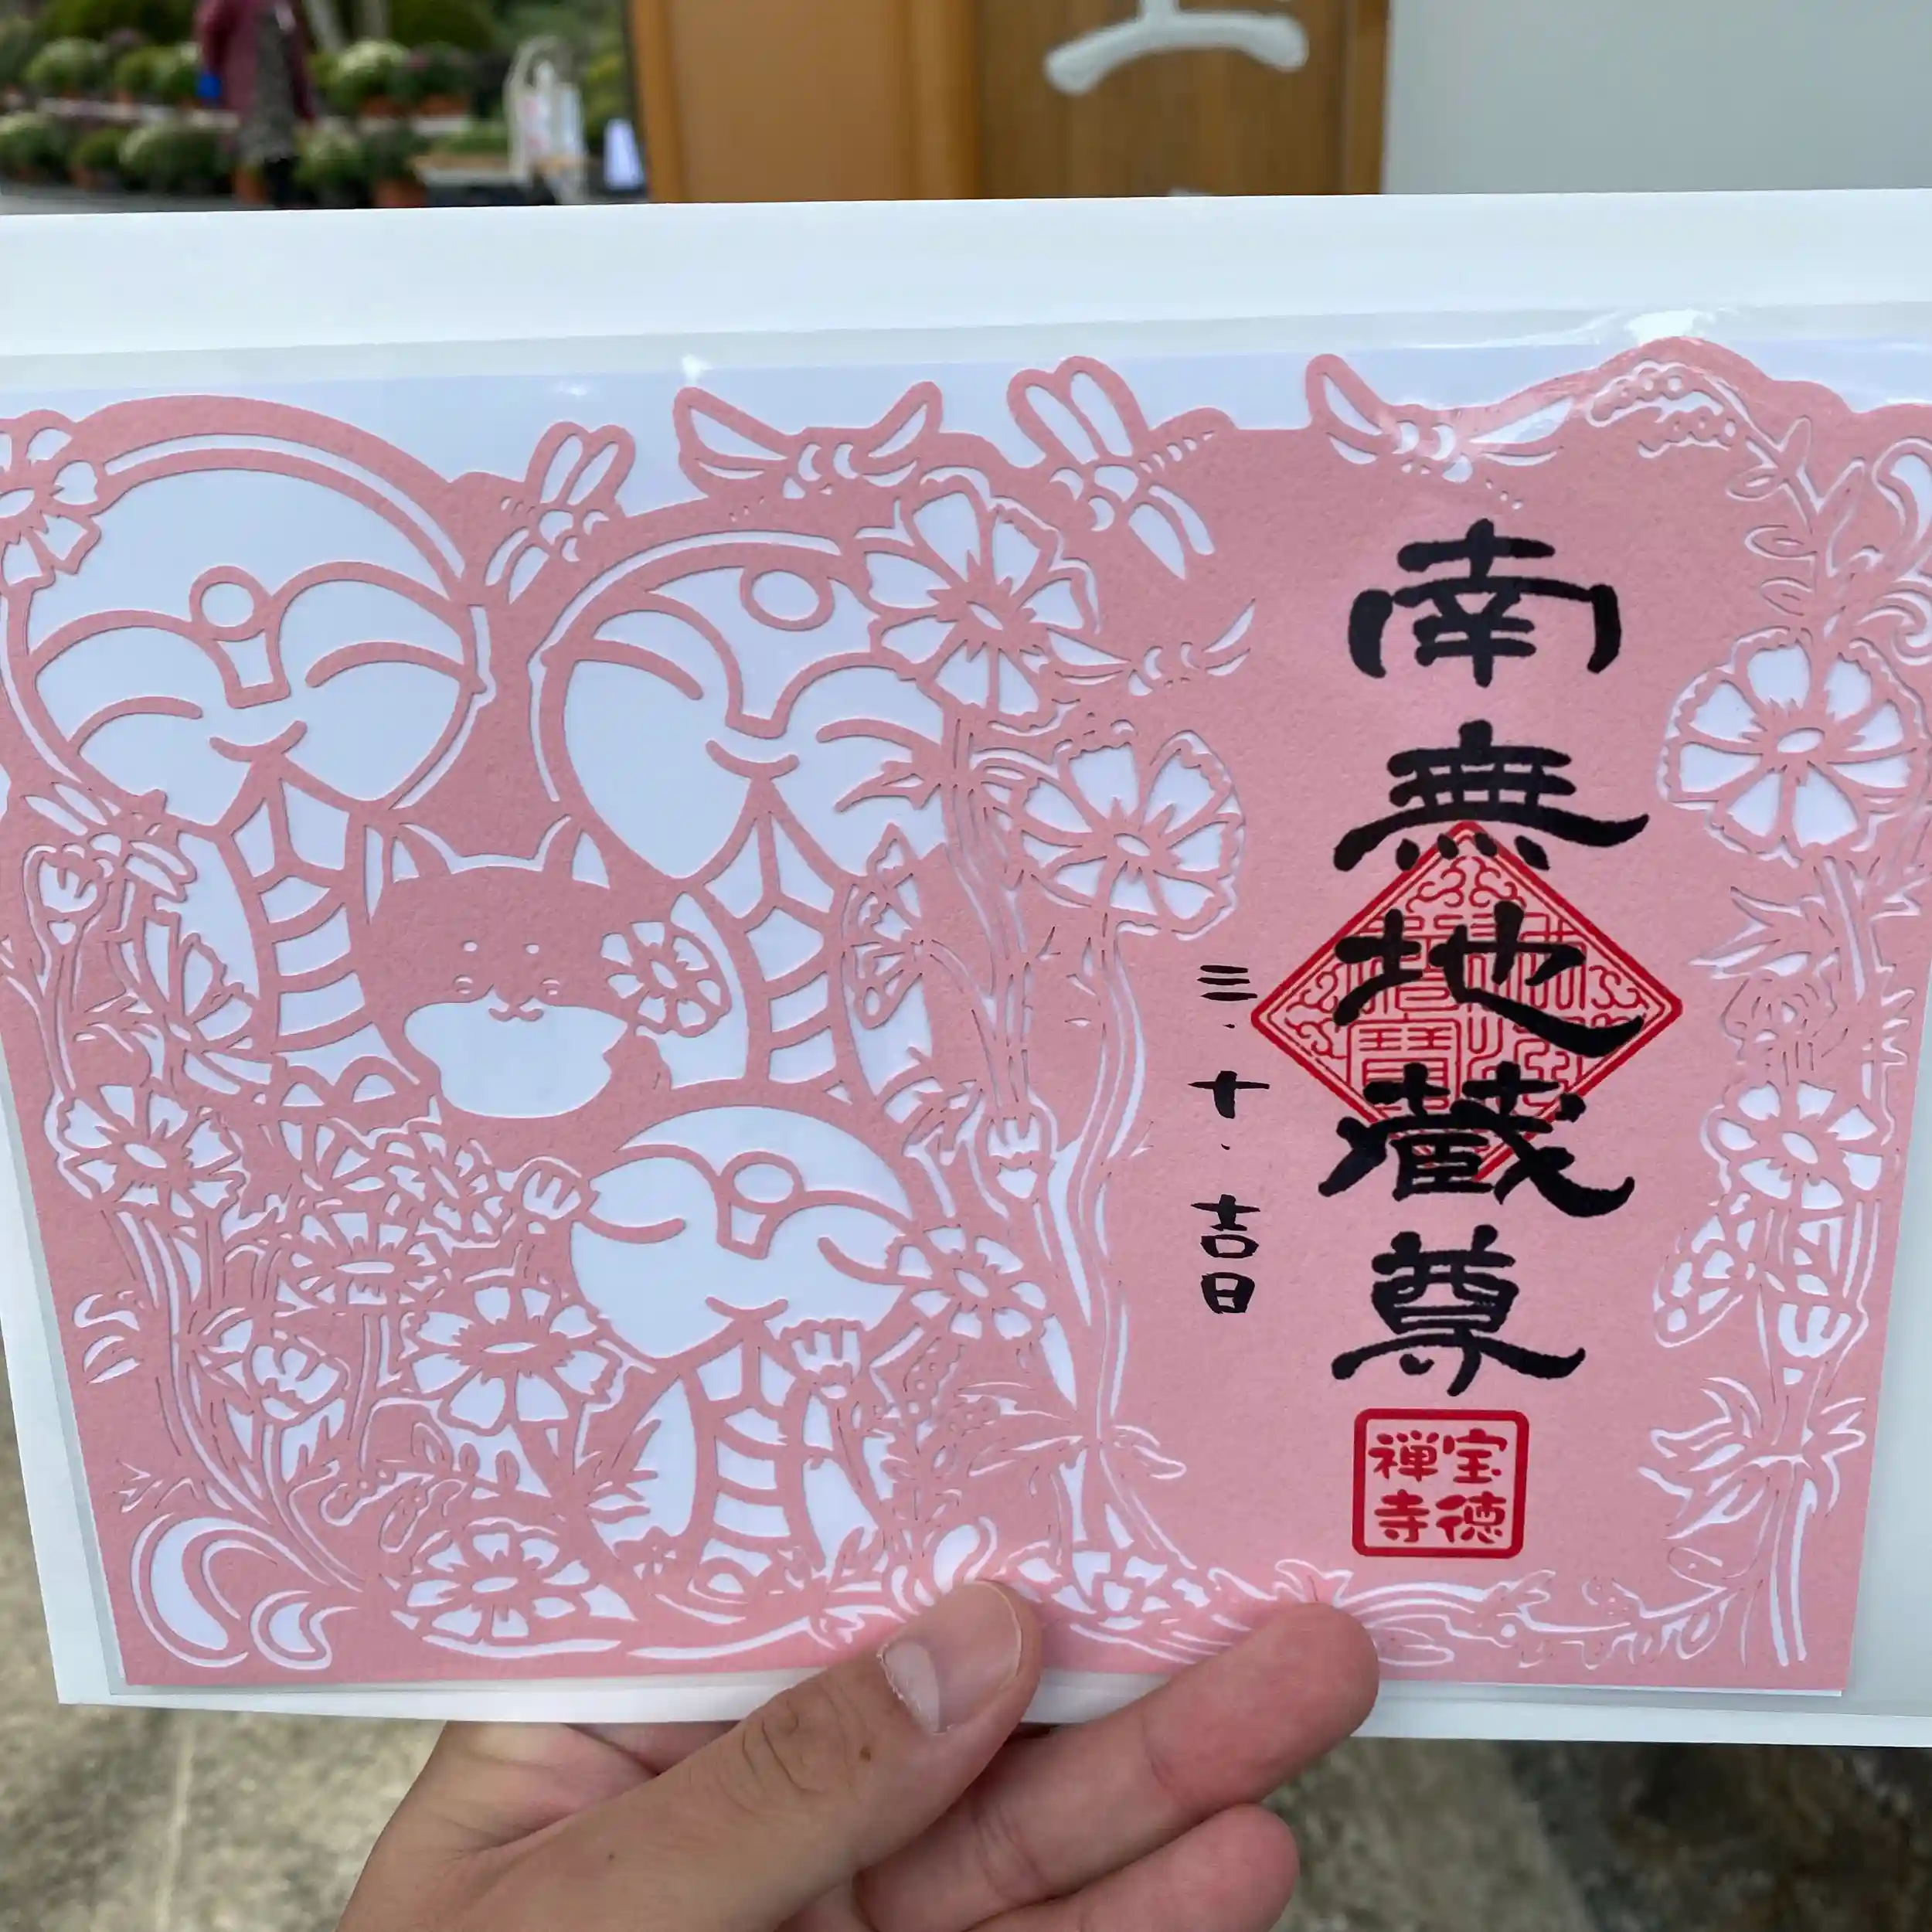 南無地蔵尊
三・十・吉日
宝徳
禅寺